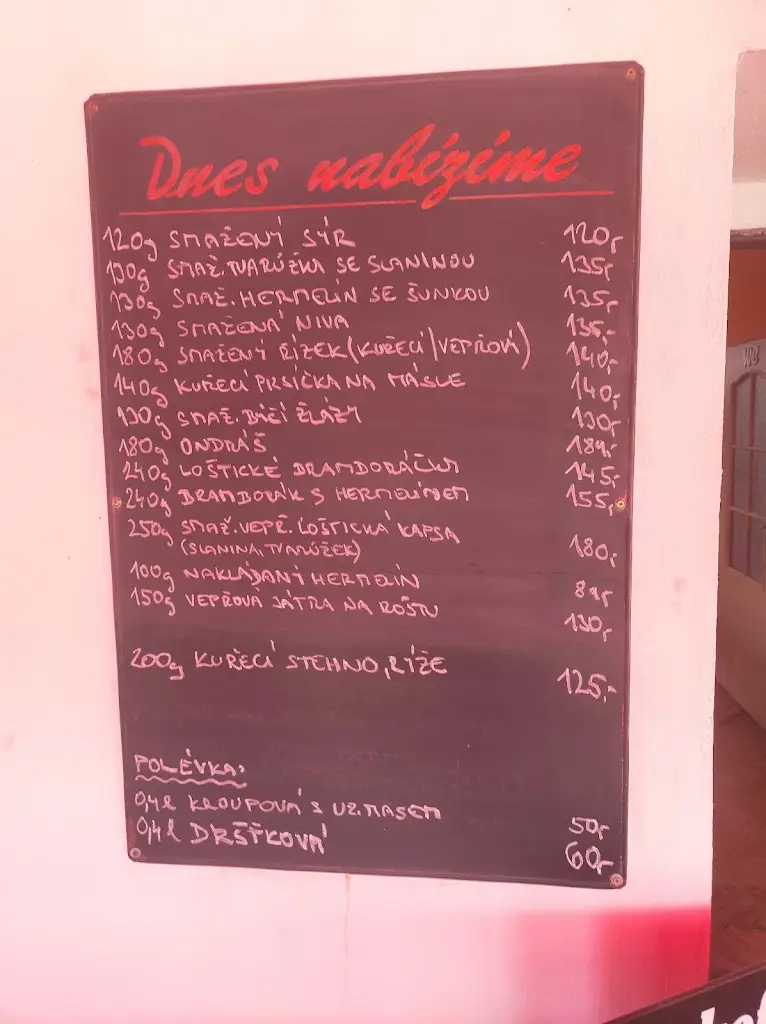 Dnes nabízíme
120g SMAŽENÝ SÝR 120,-
130g SMAŽ. TVARŮŽKY SE SLANINOU 135,-
130g SMAŽ. HERMELÍN SE ŠUNKOU 135,-
130g SMAŽENÁ NIVA 135,-
180g SMAŽENÝ ŘÍZEK (KUŘECÍ/VEPŘOVÝ) 140,-
140g KUŘECÍ PRSÍČKA NA MÁSLE 140,-
130g SMAŽ. BÝČÍ ŽLÁZY 130,-
180g ONDRÁŠ 189,-
240g LOŠTICKÉ BRAMBORÁČKY 145,-
240g BRAMBORÁK S HERMELÍNEM 155,-
250g SMAŽ. VEPŘ. LOŠTICKÁ KAPSA
(SLANINA, TVARŮŽEK) 180,-
100g NAKLÁDANÝ HERMELÍN 89,-
150g VEPŘOVÁ JÁTRA NA ROŠTU 130,-
200g KUŘECÍ STEHNO, RÝŽE 125,-
POLÉVKA:
0,4l KROUPOVÁ S UZ. MASEM 50,-
0,4l DRŠŤKOVÁ 60,-